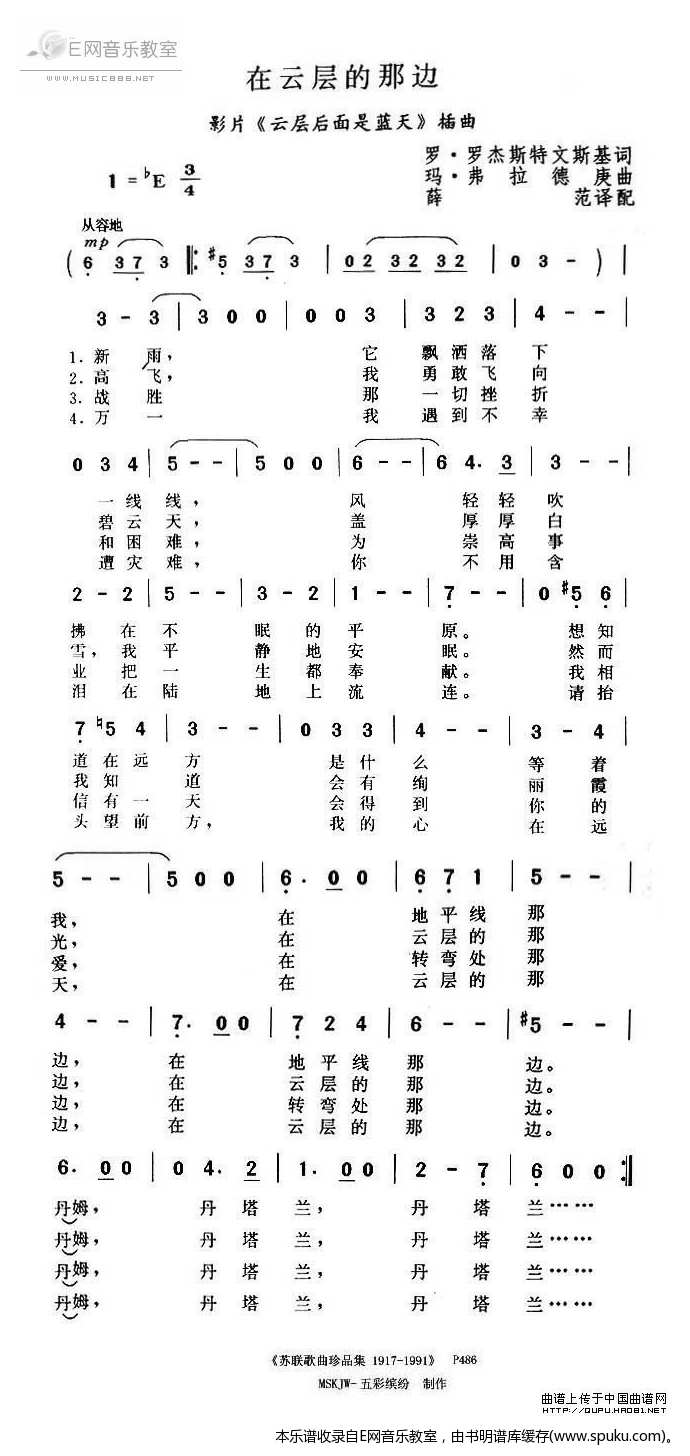 E网音乐教室
WWW.MUSIC888.NET
在云层的那边
影片《云层后面是蓝天》插曲
罗·罗杰斯特文斯基词
玛·弗拉德庚曲
薛范译配
1=♭E 3/4
从容地
mp
( 6 3 7 3 |: ♯5 3 7 3 | 0 2 3 2 3 2 | 0 3 - ) |
3 - 3 | 3 0 0 | 0 0 3 | 3 2 3 | 4 - - |
1. 新雨， 它飘洒落下
2. 高飞， 我勇敢飞向
3. 战胜 那一切挫折
4. 万一 我遇到不幸
0 3 4 | 5 - - | 5 0 0 | 6 - - | 6 4. 3 | 3 - - |
一线线， 风轻轻吹
碧云天， 盖厚厚白
和困难， 为崇高事
遭灾难， 你不用含
2 - 2 | 5 - - | 3 - 2 | 1 - - | 7 - - | 0 ♯5 6 |
拂在不眠的平原。想知
雪，我平静地安眠。然而
业把一生都奉献。我相
泪在陆地上流连。请抬
7 ♮5 4 | 3 - - | 0 3 3 | 4 - - | 3 - 4 |
道在远方 是什么等着
我知道 会有绚丽霞
信有一天 会得到你的
头望前方， 我的心在远
5 - - | 5 0 0 | 6. 0 0 | 6 7 1 | 5 - - |
我， 在地平线那
光， 在云层的那
爱， 在转弯处那
天， 在云层的那
4 - - | 7. 0 0 | 7 2 4 | 6 - - | ♯5 - - |
边，在地平线那边。
边，在云层的那边。
边，在转弯处那边。
边，在云层的那边。
6. 0 0 | 0 4. 2 | 1. 0 0 | 2 - 7 | 6 0 0 :|
丹姆，丹塔兰，丹塔兰……
丹姆，丹塔兰，丹塔兰……
丹姆，丹塔兰，丹塔兰……
丹姆，丹塔兰，丹塔兰……
《苏联歌曲珍品集 1917-1991》 P486
MSKJW-五彩缤纷 制作
曲谱上传于中国曲谱网
HTTP://WWW.QUPU.HAO81.NET
本乐谱收录自E网音乐教室，由书明谱库缓存(www.spuku.com)。